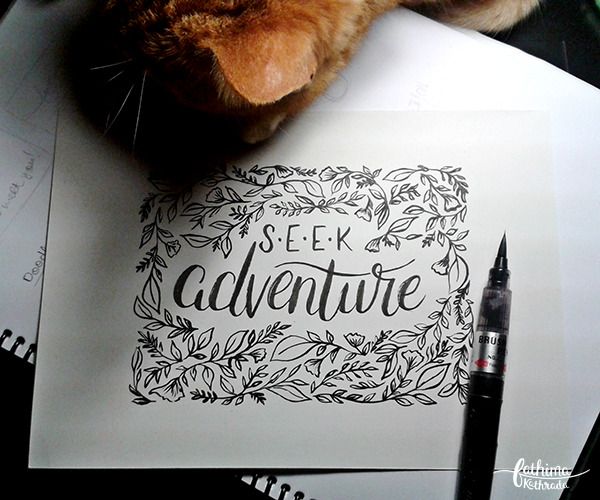 S·E·E·K
adventure
BRUSH
Doodle
fathima
Kathrada